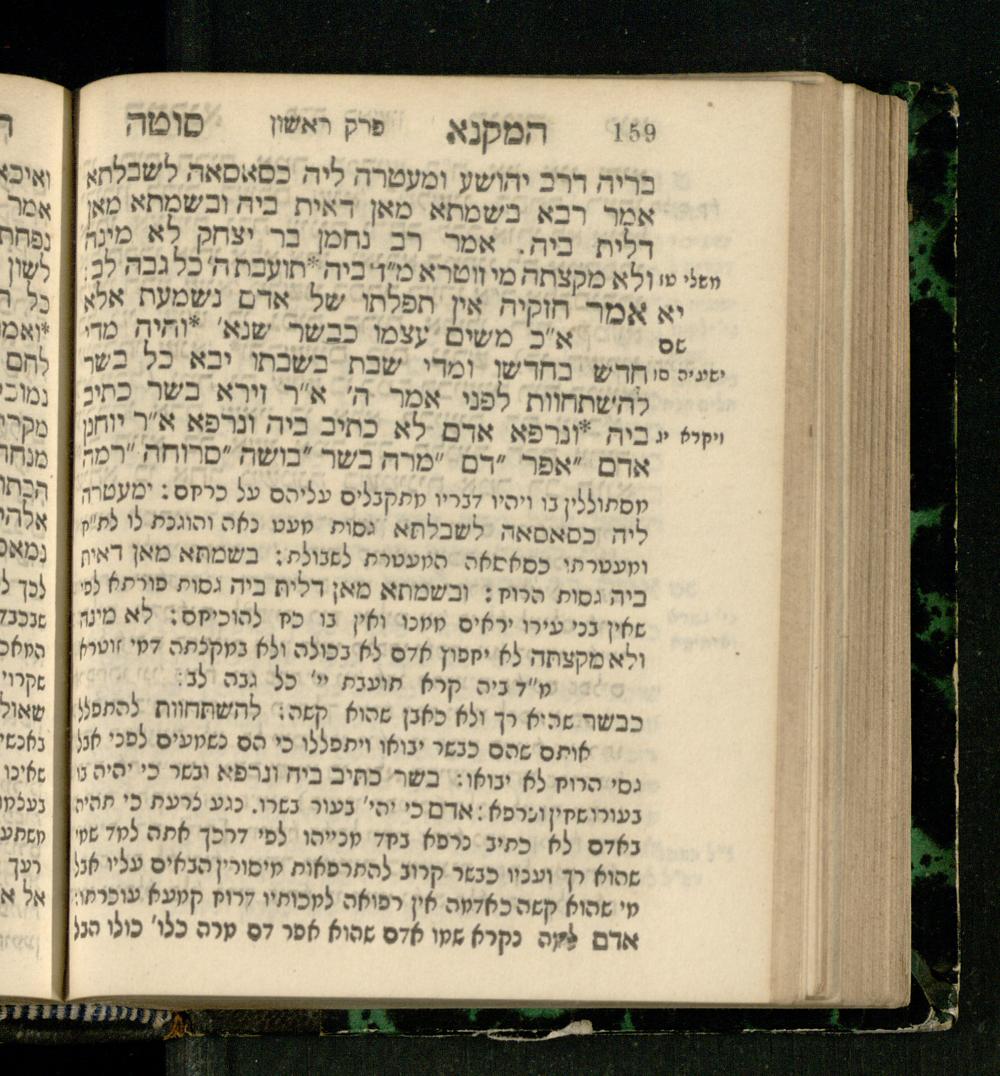 159 המקנא פרק ראשון סוטה
בריה דרב יהושע ומעטרה ליה כסאסאה לשבלתא
אמר רבא בשמתא מאן דאית ביה ובשמתא מאן
דלית ביה. אמר רב נחמן בר יצחק לא מינה
משלי טז ולא מקצתה מי זוטרא מ״ד ביה *תועבת ה׳ כל גבה לב:
יא אמר חזקיה אין תפלתו של אדם נשמעת אלא
שם א״כ משים עצמו כבשר שנא׳ *והיה מדי
ישעיה סו חדש בחדשו ומדי שבת בשבתו יבא כל בשר
להשתחוות לפני אמר ה׳ א״ר זירא בשר כתיב
ויקרא יג ביה *ונרפא אדם לא כתיב ביה ונרפא א״ר יוחנן
אדם ״אפר ״דם ״מרה בשר ״בושה ״סרוחה ״רמה
מסתוללין בו ויהיו דבריו מתקבלים עליהם על כרחם: ימעטרה
ליה כסאסאה לשבלתא גסות מעט נאה והוגנת לו לת״ח
ומעטרתי כסאסאה המעטרת לשבולת: בשמתא מאן דאית
ביה גסות הרוח: ובשמתא מאן דלית ביה גסות פורתא לפי
שאין בני עירו יראים ממנו ואין בו כח להוכיחם: לא מינה
ולא מקצתה לא יחפוץ אדם לא בכולה ולא במקלתה דמי זוטרא
מ״ד ביה קרא תועבת יי׳ כל גבה לב:
כבשר שהוא רך ולא כאבן שהוא קשה: להשתחוות להתפלל
אותם שהם כבשר יבואו ויתפללו כי הם נשמעים לפני אבל
גסי הרוח לא יבואו: בשר כתיב ביה ונרפא ובשר כי יהיה בו
בעורו שחין ונרפא: אדם כי יהי׳ בעור בשרו. נגע צרעת כי תהיה
באדם לא כתיב נרפא בחד מנייהו לפי דרכך אתה למד שמי
שהוא רך ועניו כבשר קרוב להתרפאות מיסורין הבאים עליו אבל
מי שהוא קשה כאדמה אין רפואה למכותיו דרוח קמעא עוכרתו:
אדם למה נקרא שמו אדם שהוא אפר דם מרה כלו׳ כולו הבל